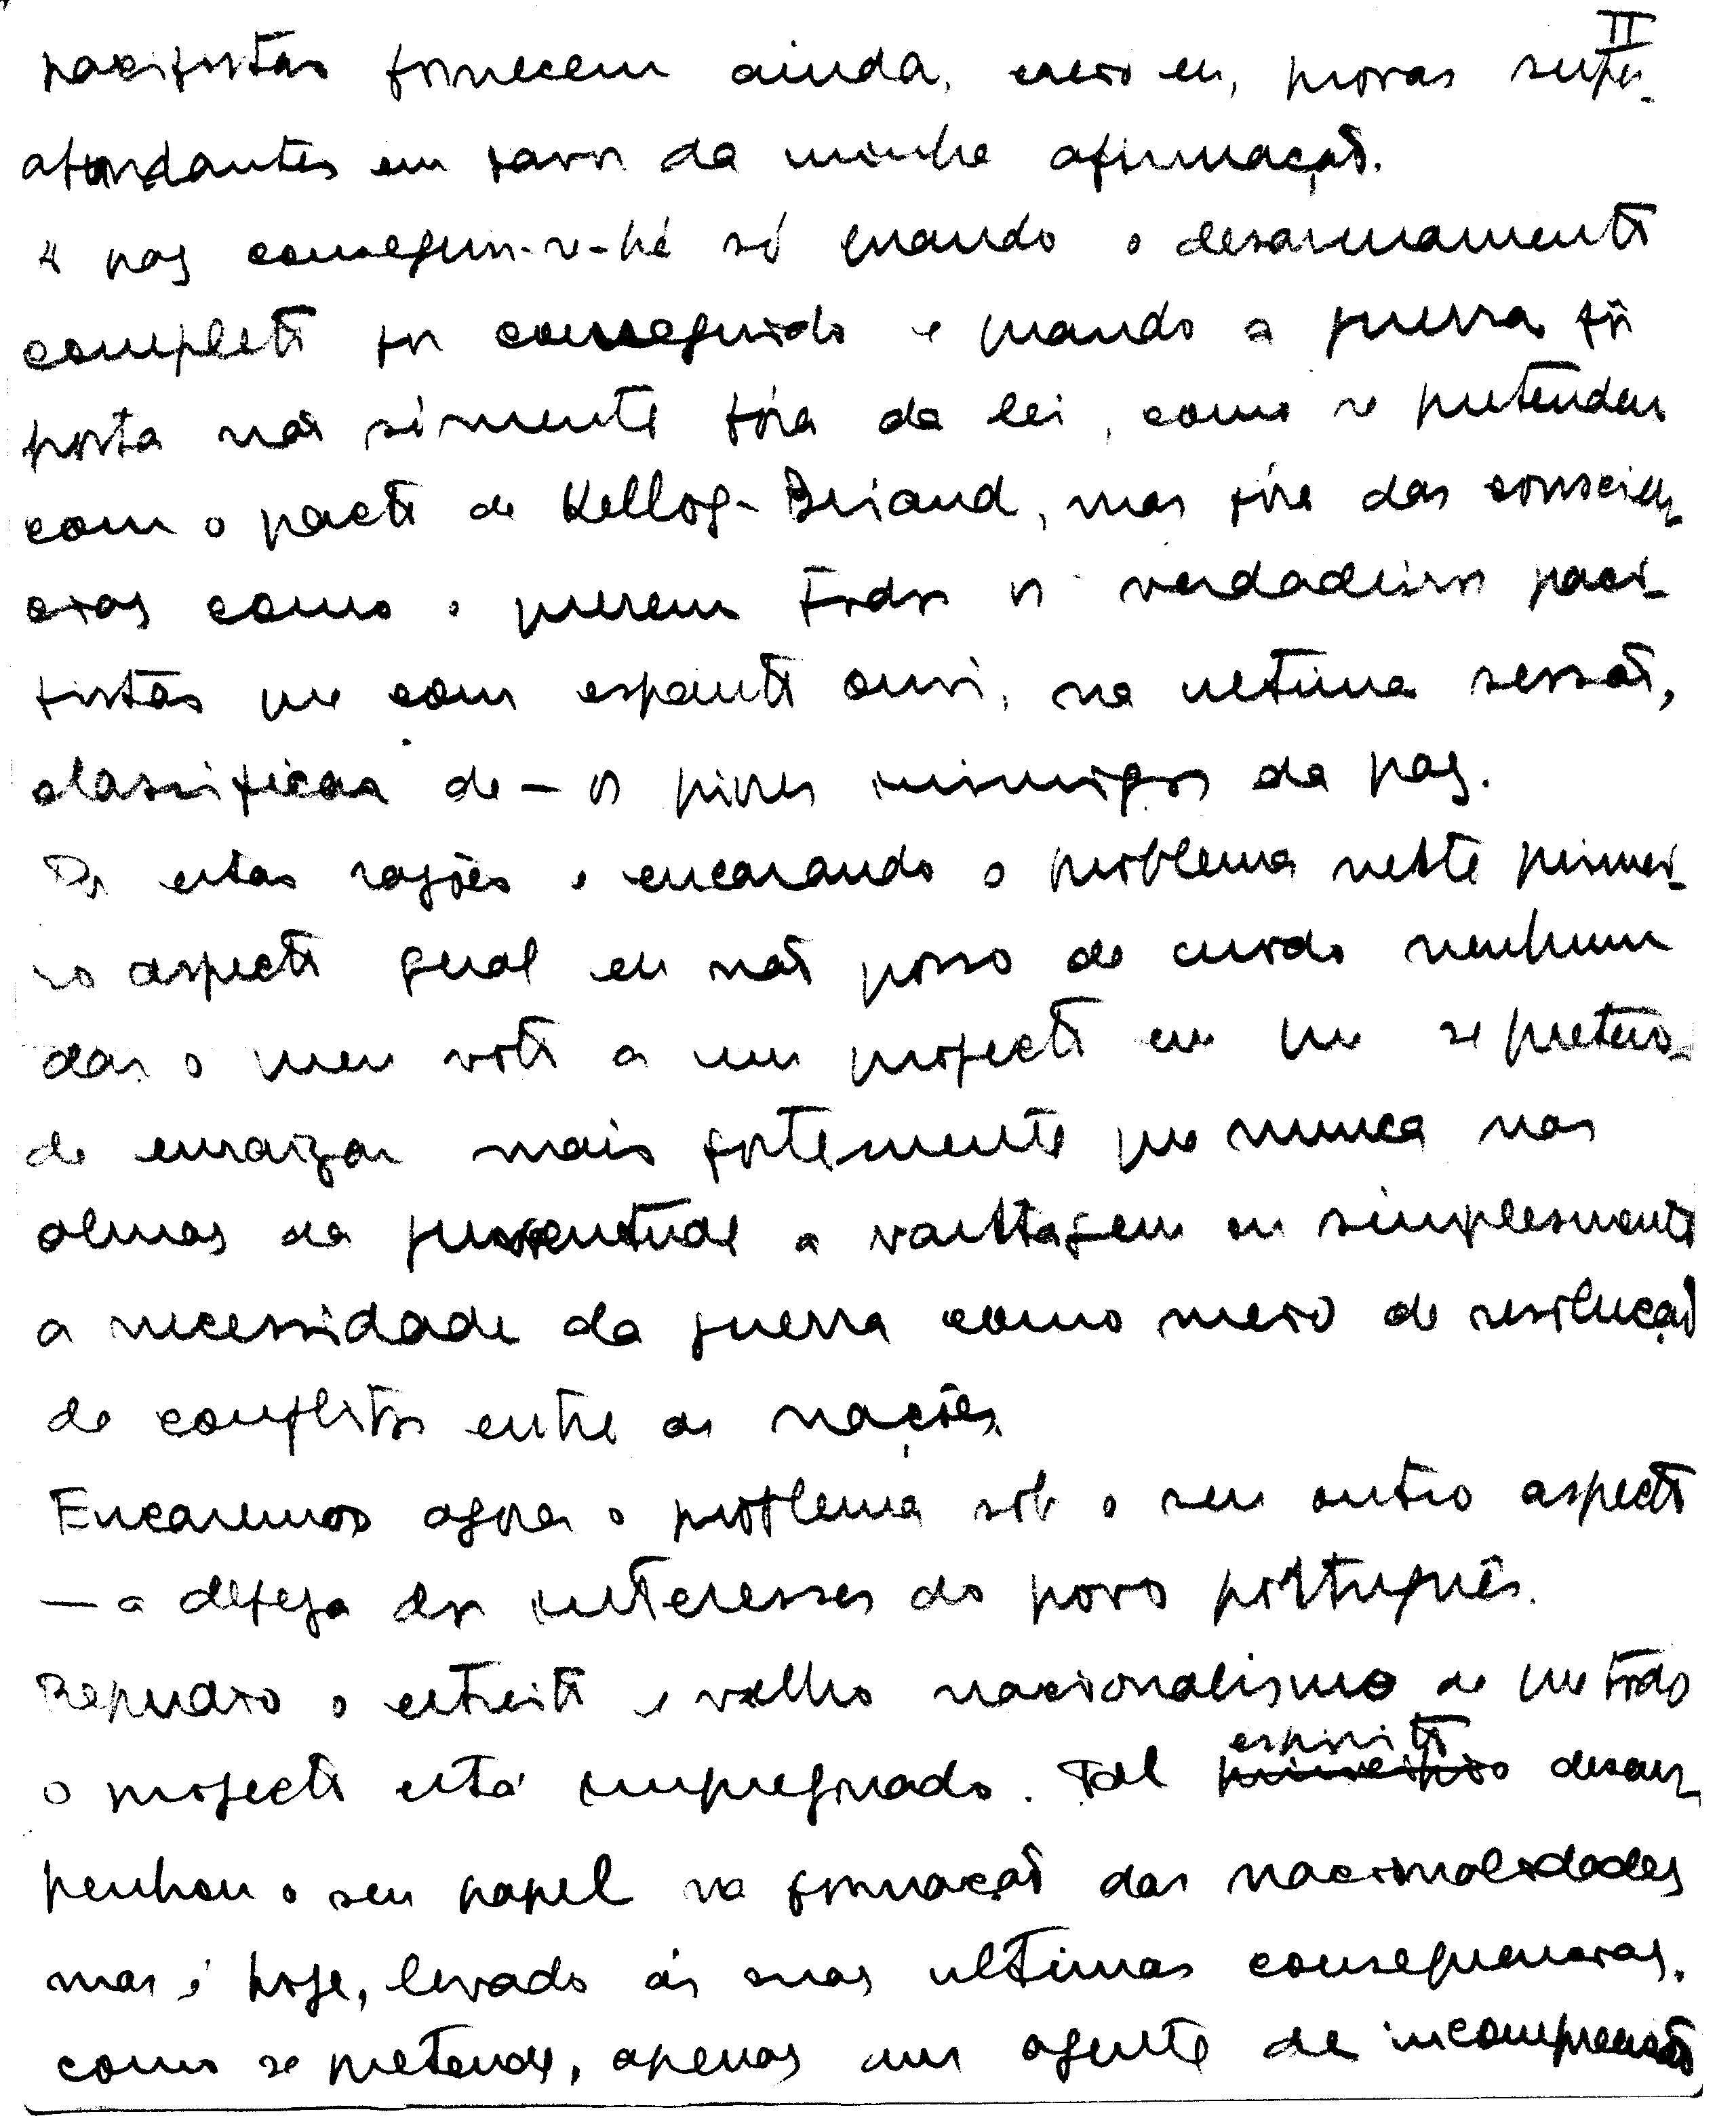 II
pacifistas fornecem ainda, creio eu, provas super-
abundantes em favor da minha afirmação.
A paz conseguir-se-há só quando o desarmamento
completo for conseguido e quando a guerra fôr
posta não sómente fóra da lei, como se pretendeu
com o pacto de Kellog-Briand, mas fóra das conscien-
cias como o querem todos os verdadeiros paci-
fistas que com espanto ouvi, na ultima sessão,
classificar de — os piores inimigos da paz.
Por estas razões e encarando o problema neste primei-
ro aspecto geral eu não posso de modo nenhum
dar o meu voto a um projecto em que se preten-
de enraizar mais fortemente que nunca nas
almas da juventude a vantagem ou simplesmente
a necessidade da guerra como meio de resolução
de conflitos entre as nações.
Encaremos agora o problema sob o seu outro aspecto
— a defeza dos interesses do povo português.
Repudio o estreito e velho nacionalismo de que todo
o projecto está impregnado. Tal espirito desem-
penhou o seu papel na formação das nacionalidades
mas é hoje, levado ás suas ultimas consequencias,
como se pretende, apenas um agente de incompreensão